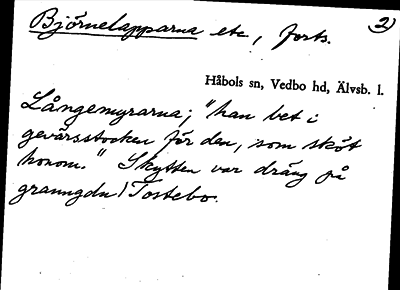 Björnelapparna etc, forts.
2)
Håbols sn, Vedbo hd, Älvsb. l.
Långemyrarna; "han bet i
gevärsstocken för den, som sköt
honom." Skytten var dräng på
granngdn Tostebo.